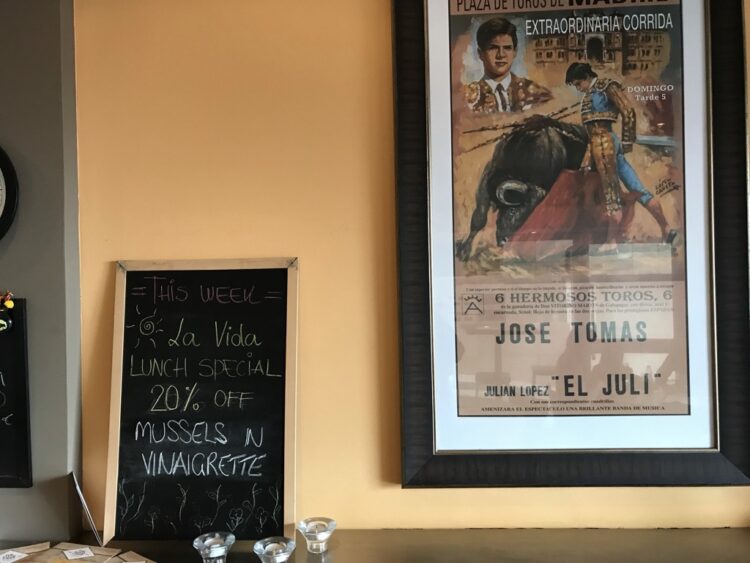 = THIS WEEK =
La Vida
LUNCH SPECIAL
20% OFF
MUSSELS IN
VINAIGRETTE
PLAZA DE TOROS DE MADRID
EXTRAORDINARIA CORRIDA
DOMINGO
Tarde 5
6 HERMOSOS TOROS, 6
JOSE TOMAS
JULIAN LOPEZ "EL JULI"
Con sus correspondientes cuadrillas
AMENIZARA EL ESPECTACULO UNA BRILLANTE BANDA DE MUSICA